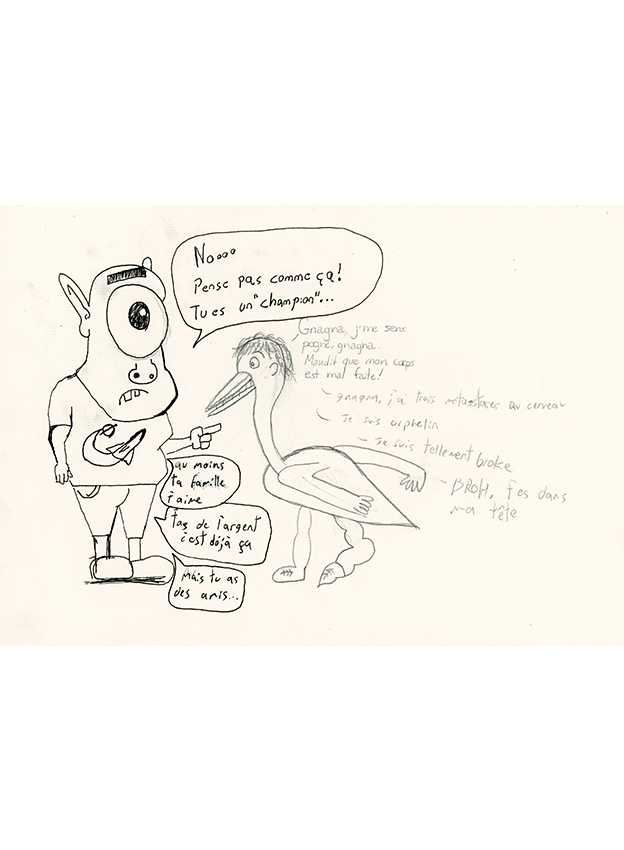 Nooo
Pense pas comme ça!
Tu es un "champion"...
Gnagna, j'me sens
pogné, gnagna.
Maudit que mon corps
est mal faite!
gnagna, j'ai trois métastases au cerveau
au moins
ta famille
t'aime
Je suis orphelin
tas de l'argent
c'est déjà ça
Je suis tellement broke
Mais tu as
des amis...
BROH, t'es dans
ma tête